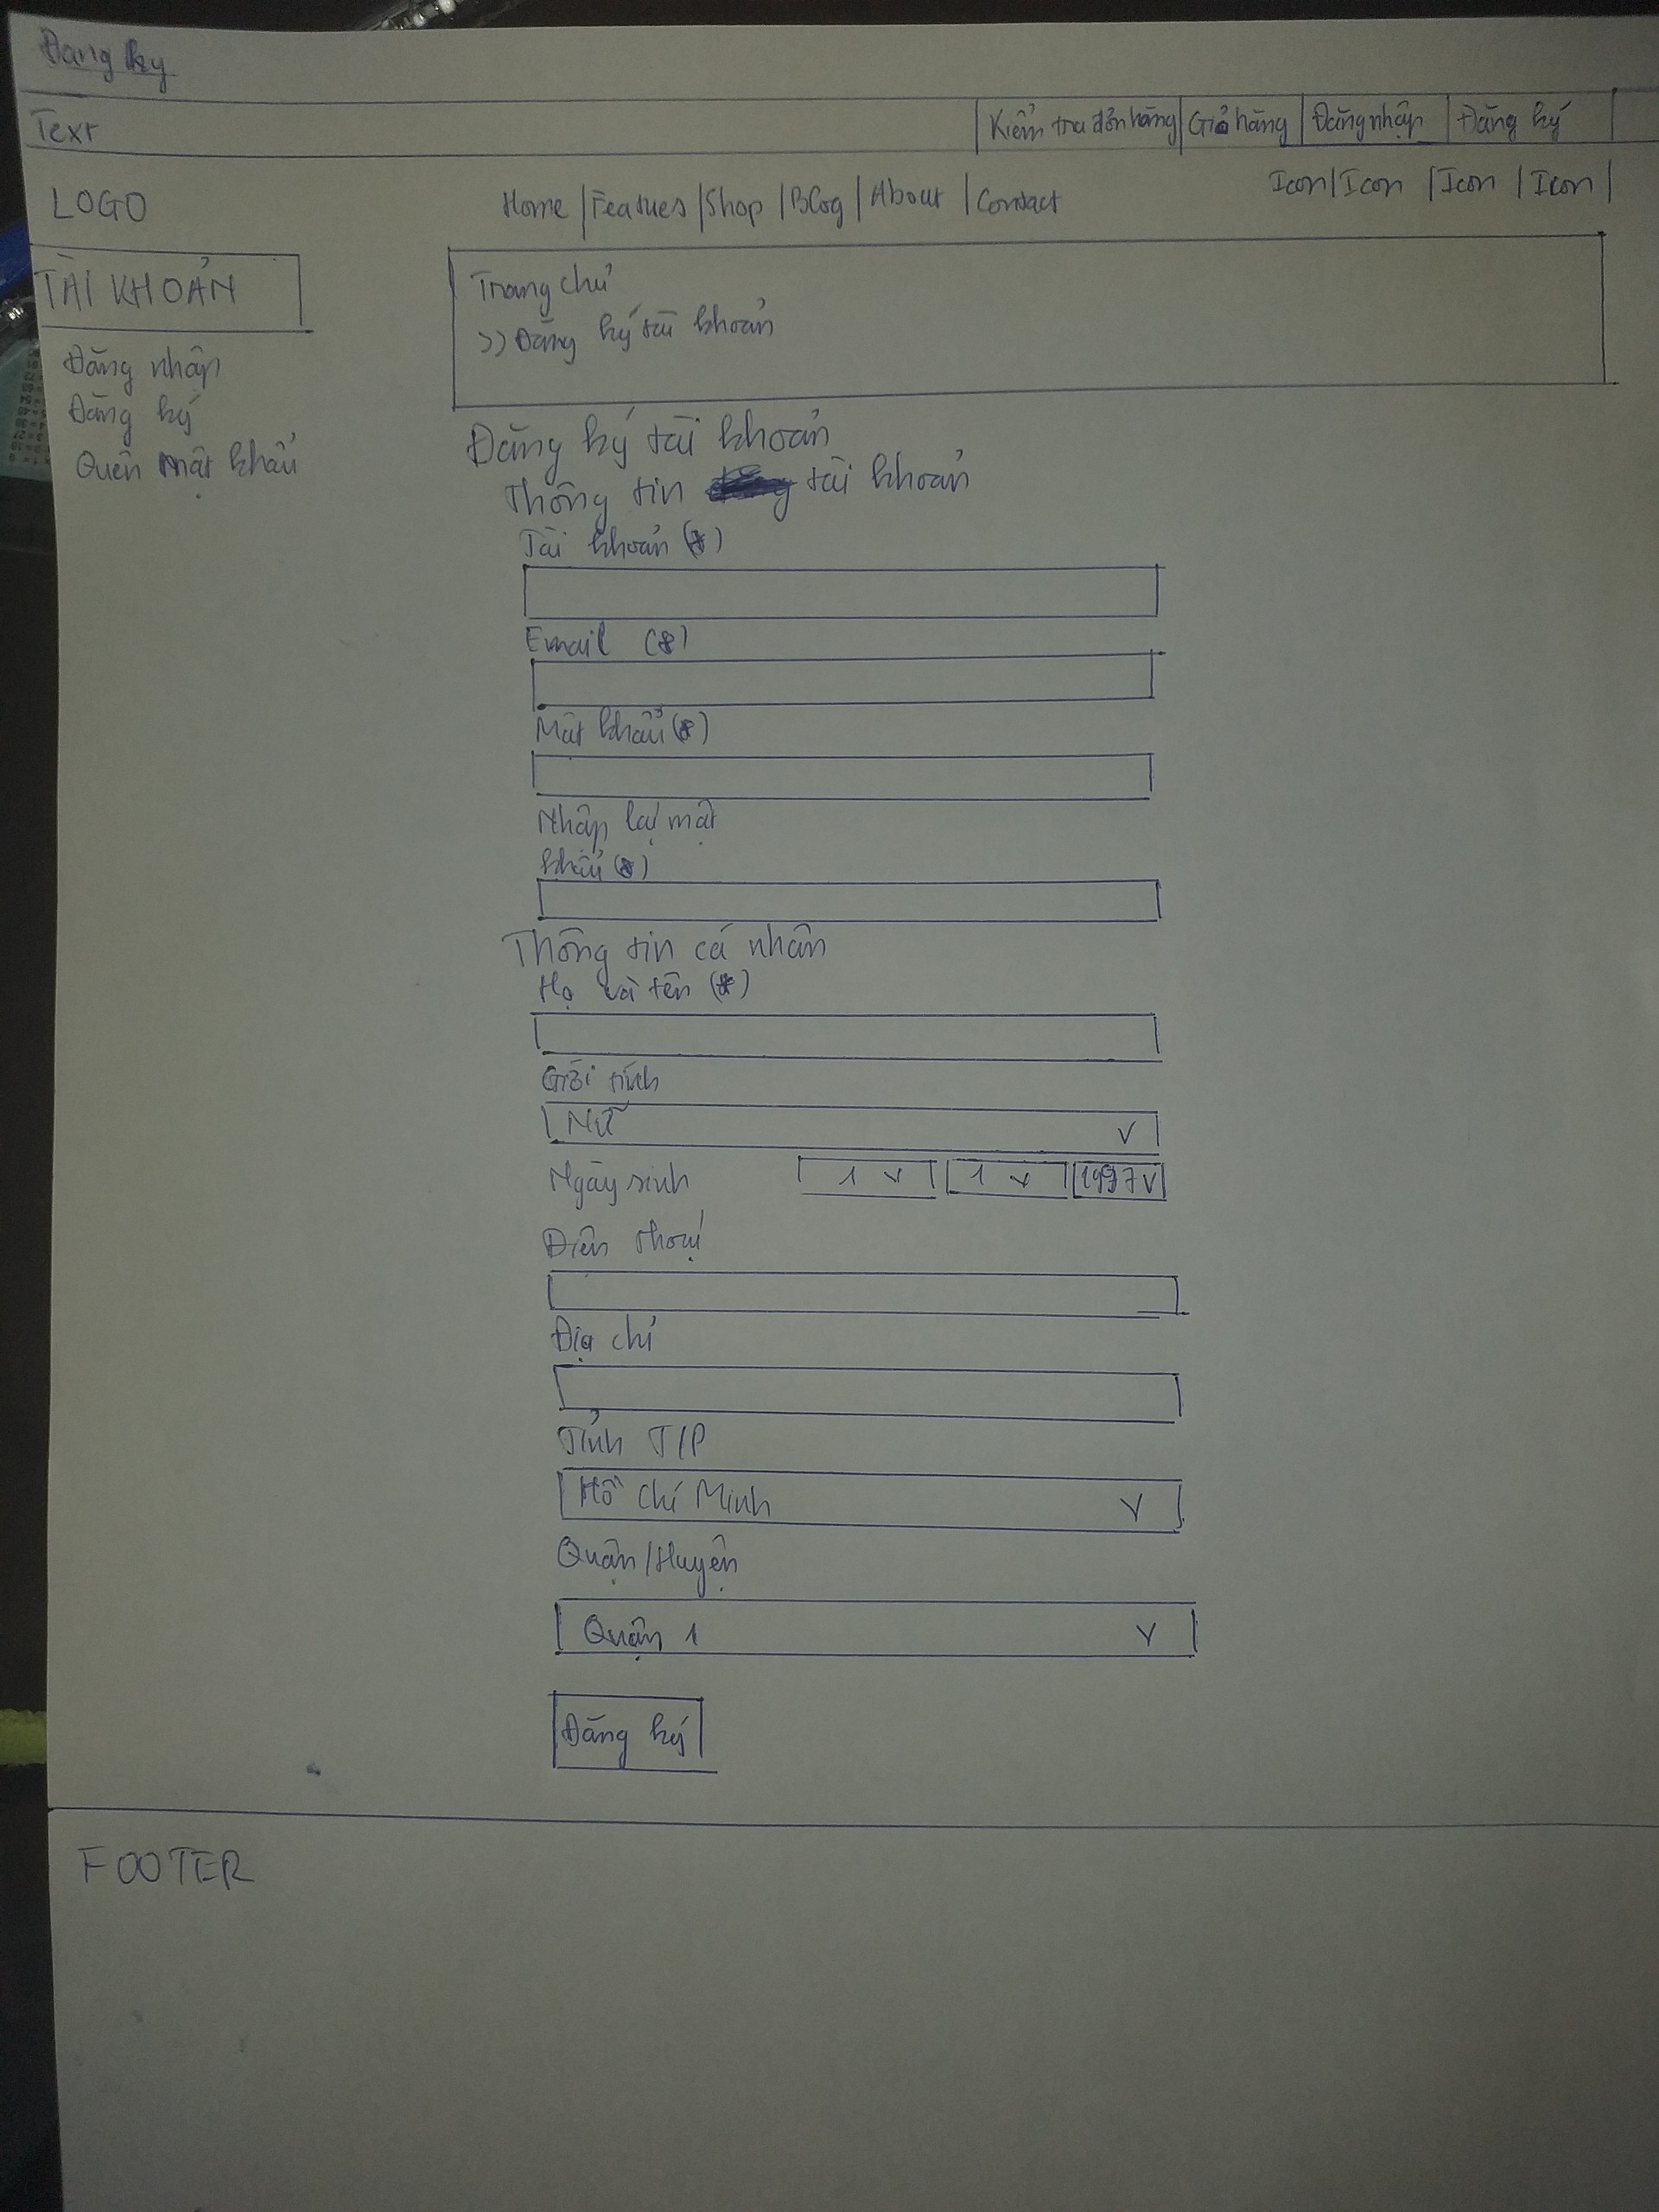 Đăng ký
Text | Kiểm tra đơn hàng | Giỏ hàng | Đăng nhập | Đăng ký
LOGO Home | Featues | Shop | Blog | About | Contact Icon | Icon | Icon | Icon |
TÀI KHOẢN
Đăng nhập
Đăng ký
Quên mật khẩu
Trang chủ
>> Đăng ký tài khoản
Đăng ký tài khoản
Thông tin tài khoản
Tài khoản (*)
Email (*)
Mật khẩu (*)
Nhập lại mật
khẩu (*)
Thông tin cá nhân
Họ và tên (*)
Giới tính
Nữ V
Ngày sinh 1 v 1 v 1997 V
Điện thoại
Địa chỉ
Tỉnh T/P
Hồ Chí Minh V
Quận/Huyện
Quận 1 V
Đăng ký
FOOTER